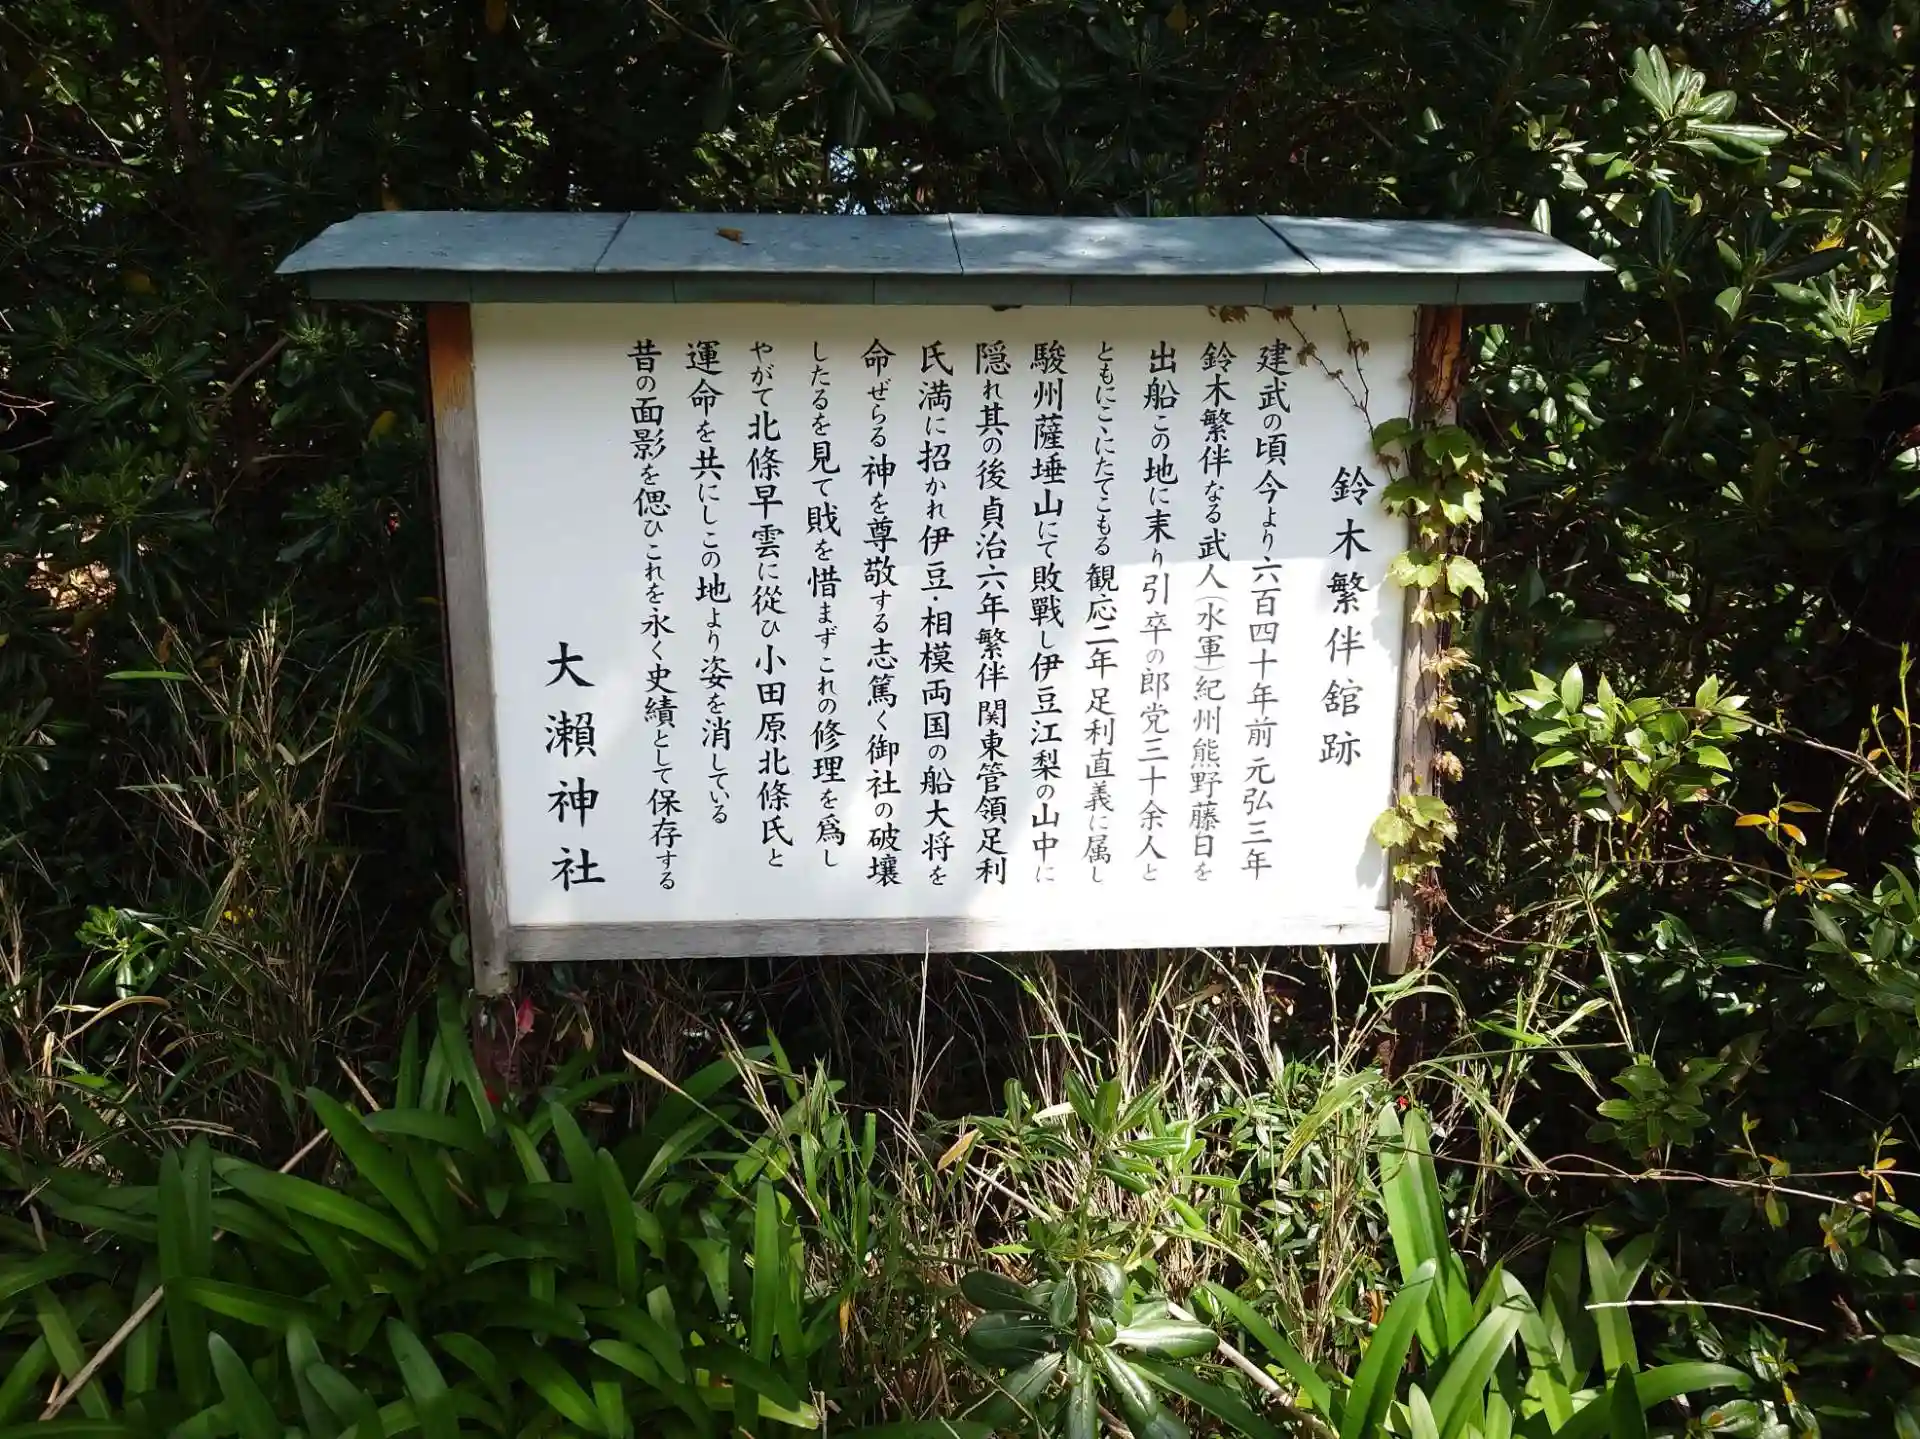 鈴木繁伴舘跡
建武の頃今より六百四十年前元弘三年
鈴木繁伴なる武人(水軍)紀州熊野藤白を
出船この地に来り引卒の郎党三十余人と
ともにこゝにたてこもる観応二年足利直義に属し
駿州薩埵山にて敗戦し伊豆江梨の山中に
隠れ其の後貞治六年繁伴関東管領足利
氏満に招かれ伊豆・相模両国の船大将を
命ぜらる神を尊敬する志篤く御社の破壊
したるを見て戝を惜まずこれの修理を爲し
やがて北條早雲に從ひ小田原北條氏と
運命を共にしこの地より姿を消している
昔の面影を偲ひこれを永く史績として保存する
大瀬神社